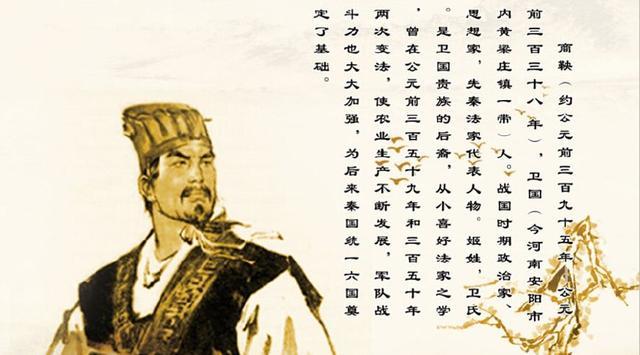 商鞅（约公元前三百九十五年-公元
前三百三十八年），卫国（今河南安阳市
内黄梁庄镇一带）人。战国时期政治家、
思想家，先秦法家代表人物。姬姓，卫氏
。是卫国贵族的后裔，从小喜好法家之学
，曾在公元前三百五十九年和三百五十年
两次变法，使农业生产不断发展，军队战
斗力也大大加强，为后来秦国统一六国奠
定了基础。